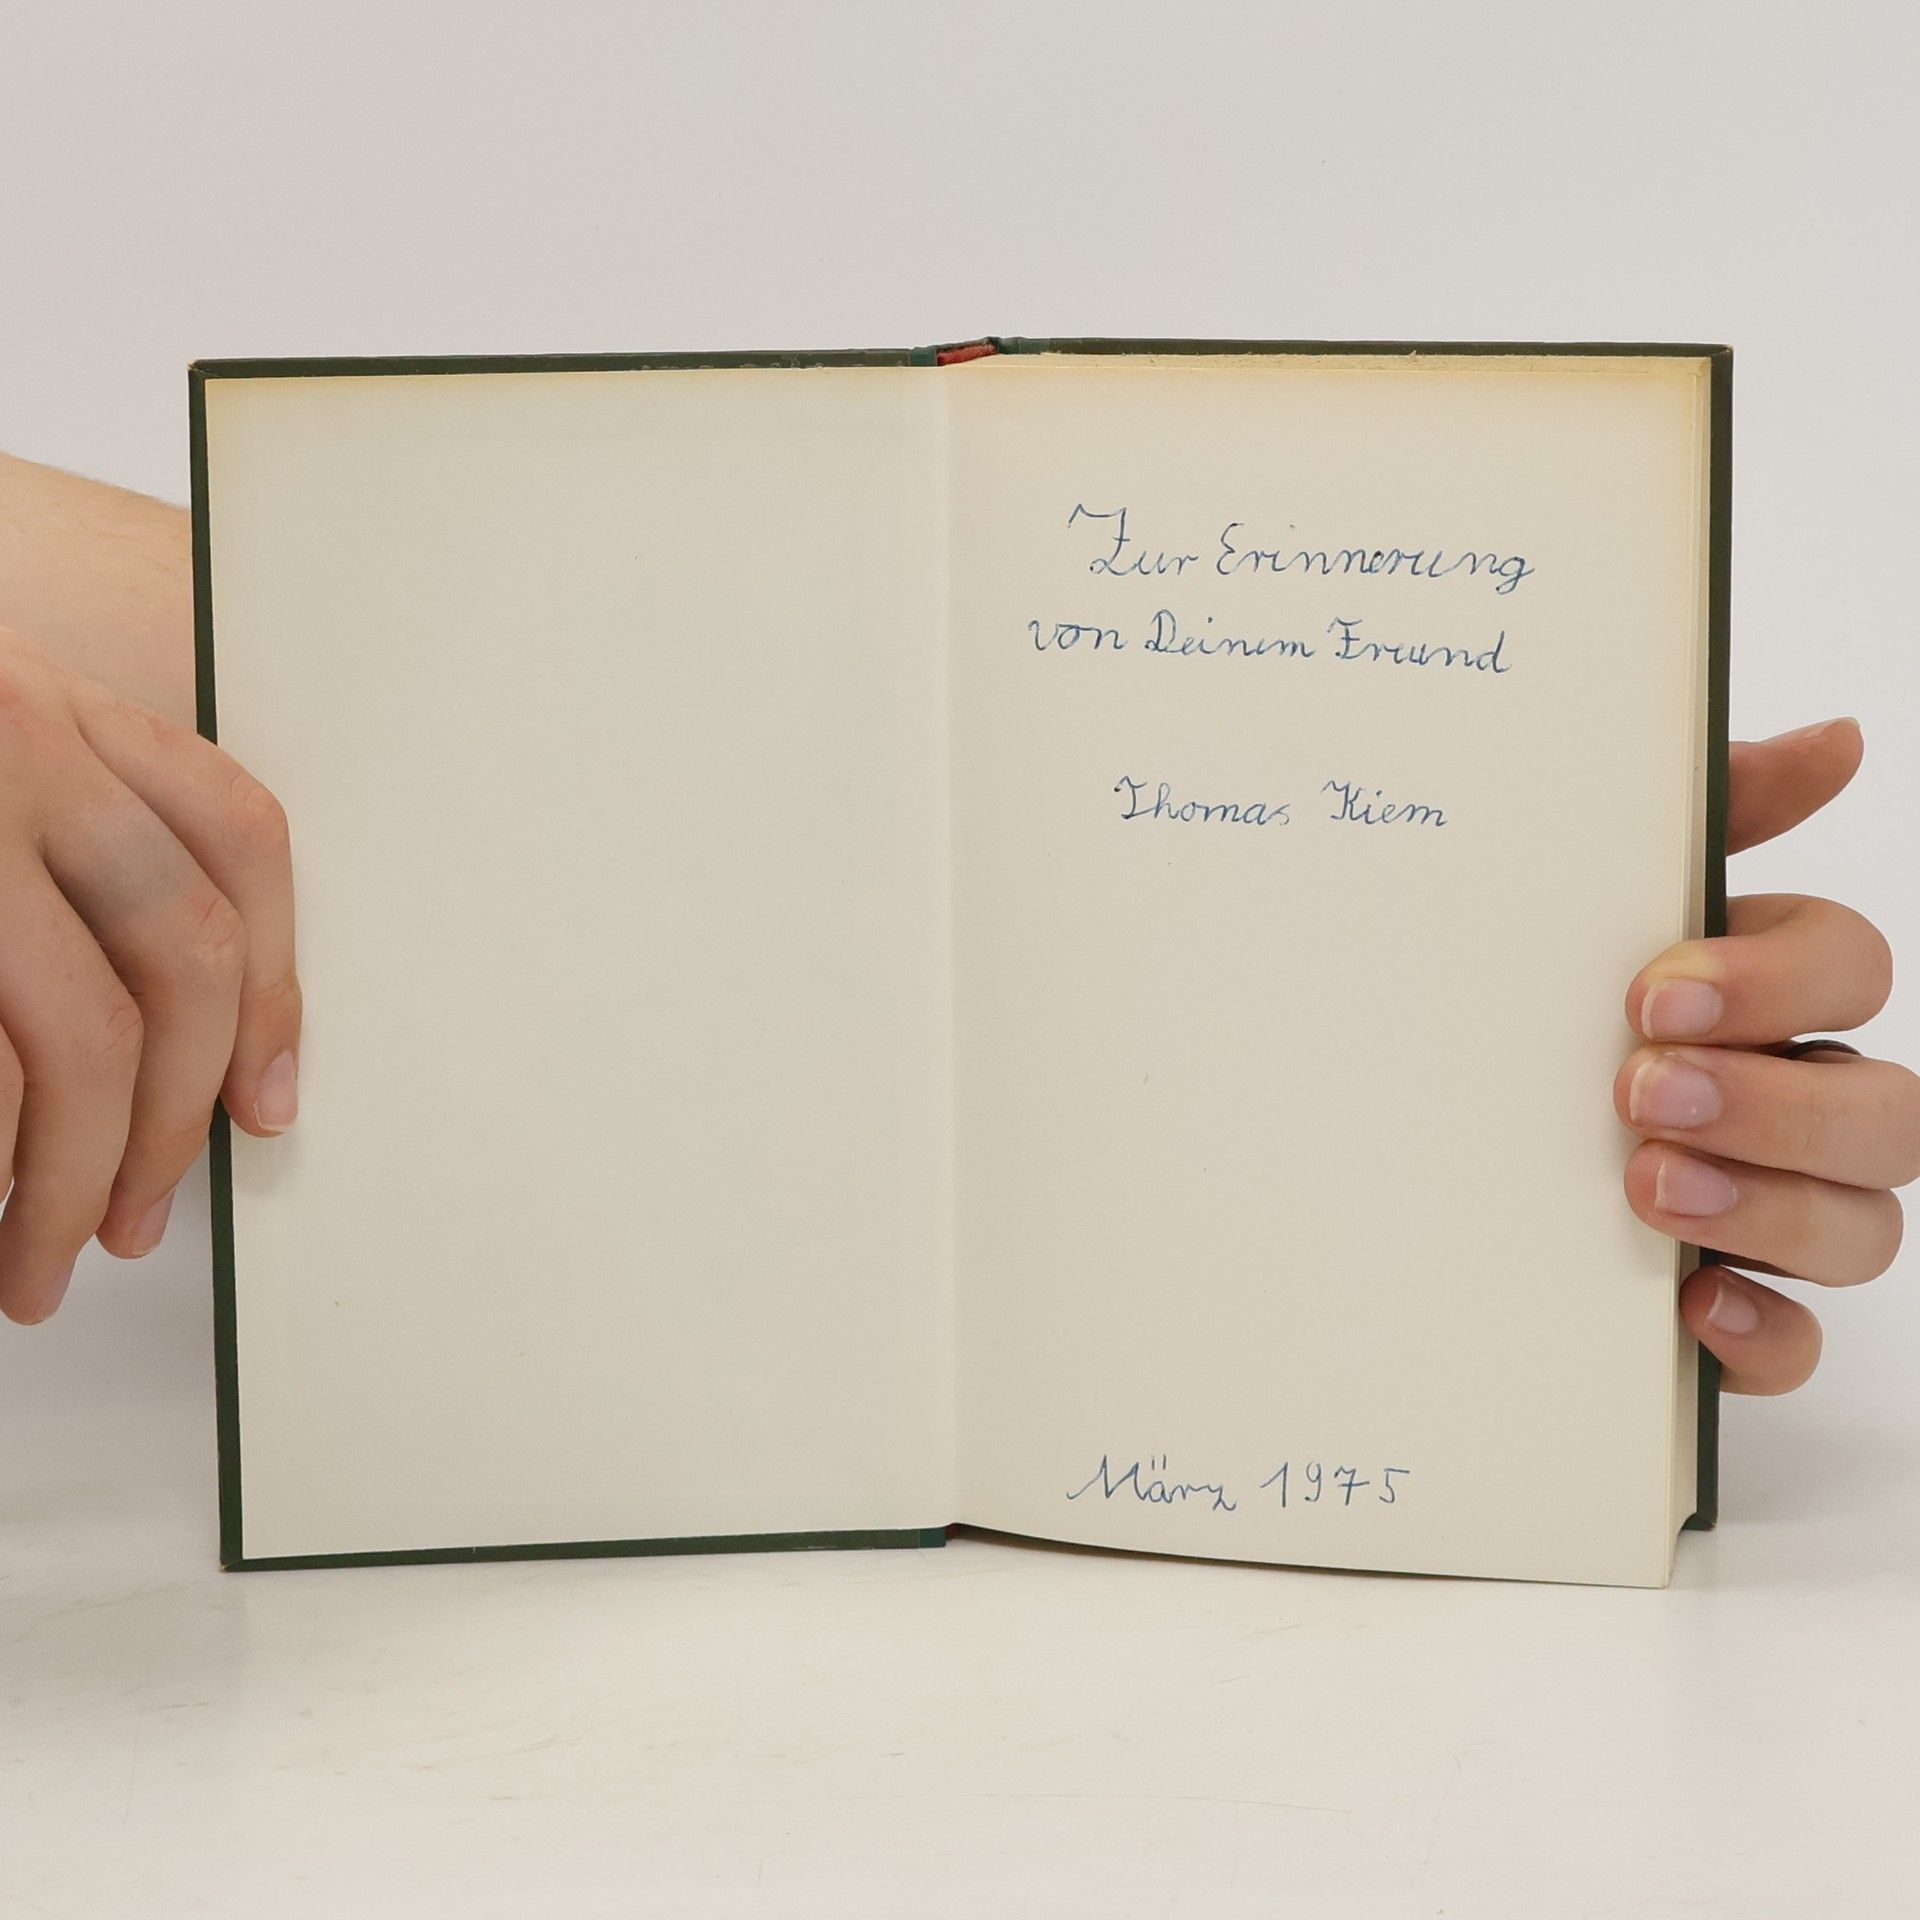 Zur Erinnerung
von Deinem Freund
Thomas Kiem
März 1975